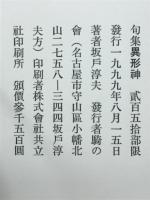 句集異形神　貳百五拾部限
發行一九九九年八月一五日
著者坂戸淳夫　發行者騎の
會（名古屋市守山區小幡北
山二七五八―三四四坂戸淳
夫方）印刷者株式會社共立
社印刷所　頒價參千五百圓